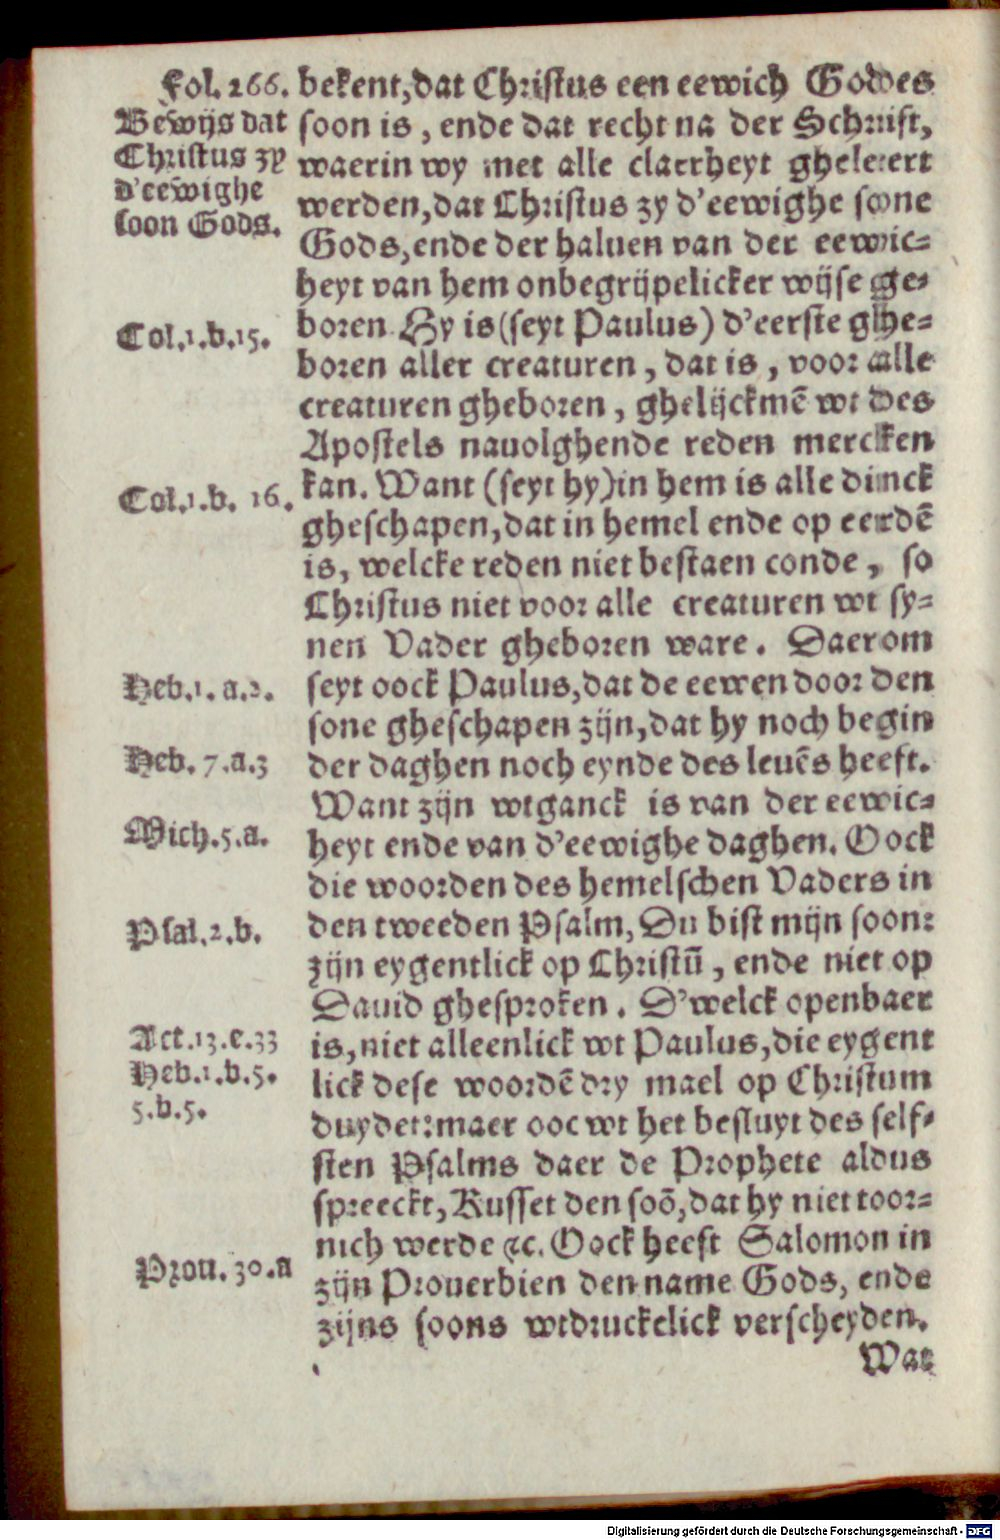 Fol. 266.
Bewijs dat
Christus zy
d'eewighe
soon Gods.
Col.1.b.15.
Col.1.b. 16.
Heb.1. a.2.
Heb. 7.a.3
Mich.5.a.
Psal.2.b.
Act.13.e.33
Heb.1.b.5.
5.b.5.
Prou. 30.a
bekent, dat Christus een eewich Goddes
soon is, ende dat recht na der Schrift,
waerin wy met alle claerheyt gheleert
werden, dat Christus zy d'eewighe sone
Gods, ende der haluen van der eewic=
heyt van hem onbegrijpelicker wijse ge=
boren Hy is (seyt Paulus) d'eerste ghe=
boren aller creaturen, dat is, voor alle
creaturen gheboren, ghelijckmē wt des
Apostels nauolghende reden mercken
kan. Want (seyt hy) in hem is alle dinck
gheschapen, dat in hemel ende op eerdē
is, welcke reden niet bestaen conde, so
Christus niet voor alle creaturen wt sy=
nen Vader gheboren ware. Daerom
seyt oock Paulus, dat de eewen door den
sone gheschapen zijn, dat hy noch begin
der daghen noch eynde des leuēs heeft.
Want zijn wtganck is van der eewic=
heyt ende van d'eewighe daghen. Oock
die woorden des hemelschen Vaders in
den tweeden Psalm, Du bist mijn soon:
zijn eygentlick op Christū, ende niet op
Dauid ghesproken. D'welck openbaer
is, niet alleenlick wt Paulus, die eygent
lick dese woordē dry mael op Christum
duydet: maer ooc wt het besluyt des self=
sten Psalms daer de Prophete aldus
spreeckt, Kusset den soō, dat hy niet toor=
nich werde &c. Oock heeft Salomon in
zijn Prouerbien den name Gods, ende
zijns soons wtdruckelick verscheyden.
Wat
Digitalisierung gefördert durch die Deutsche Forschungsgemeinschaft - DFG